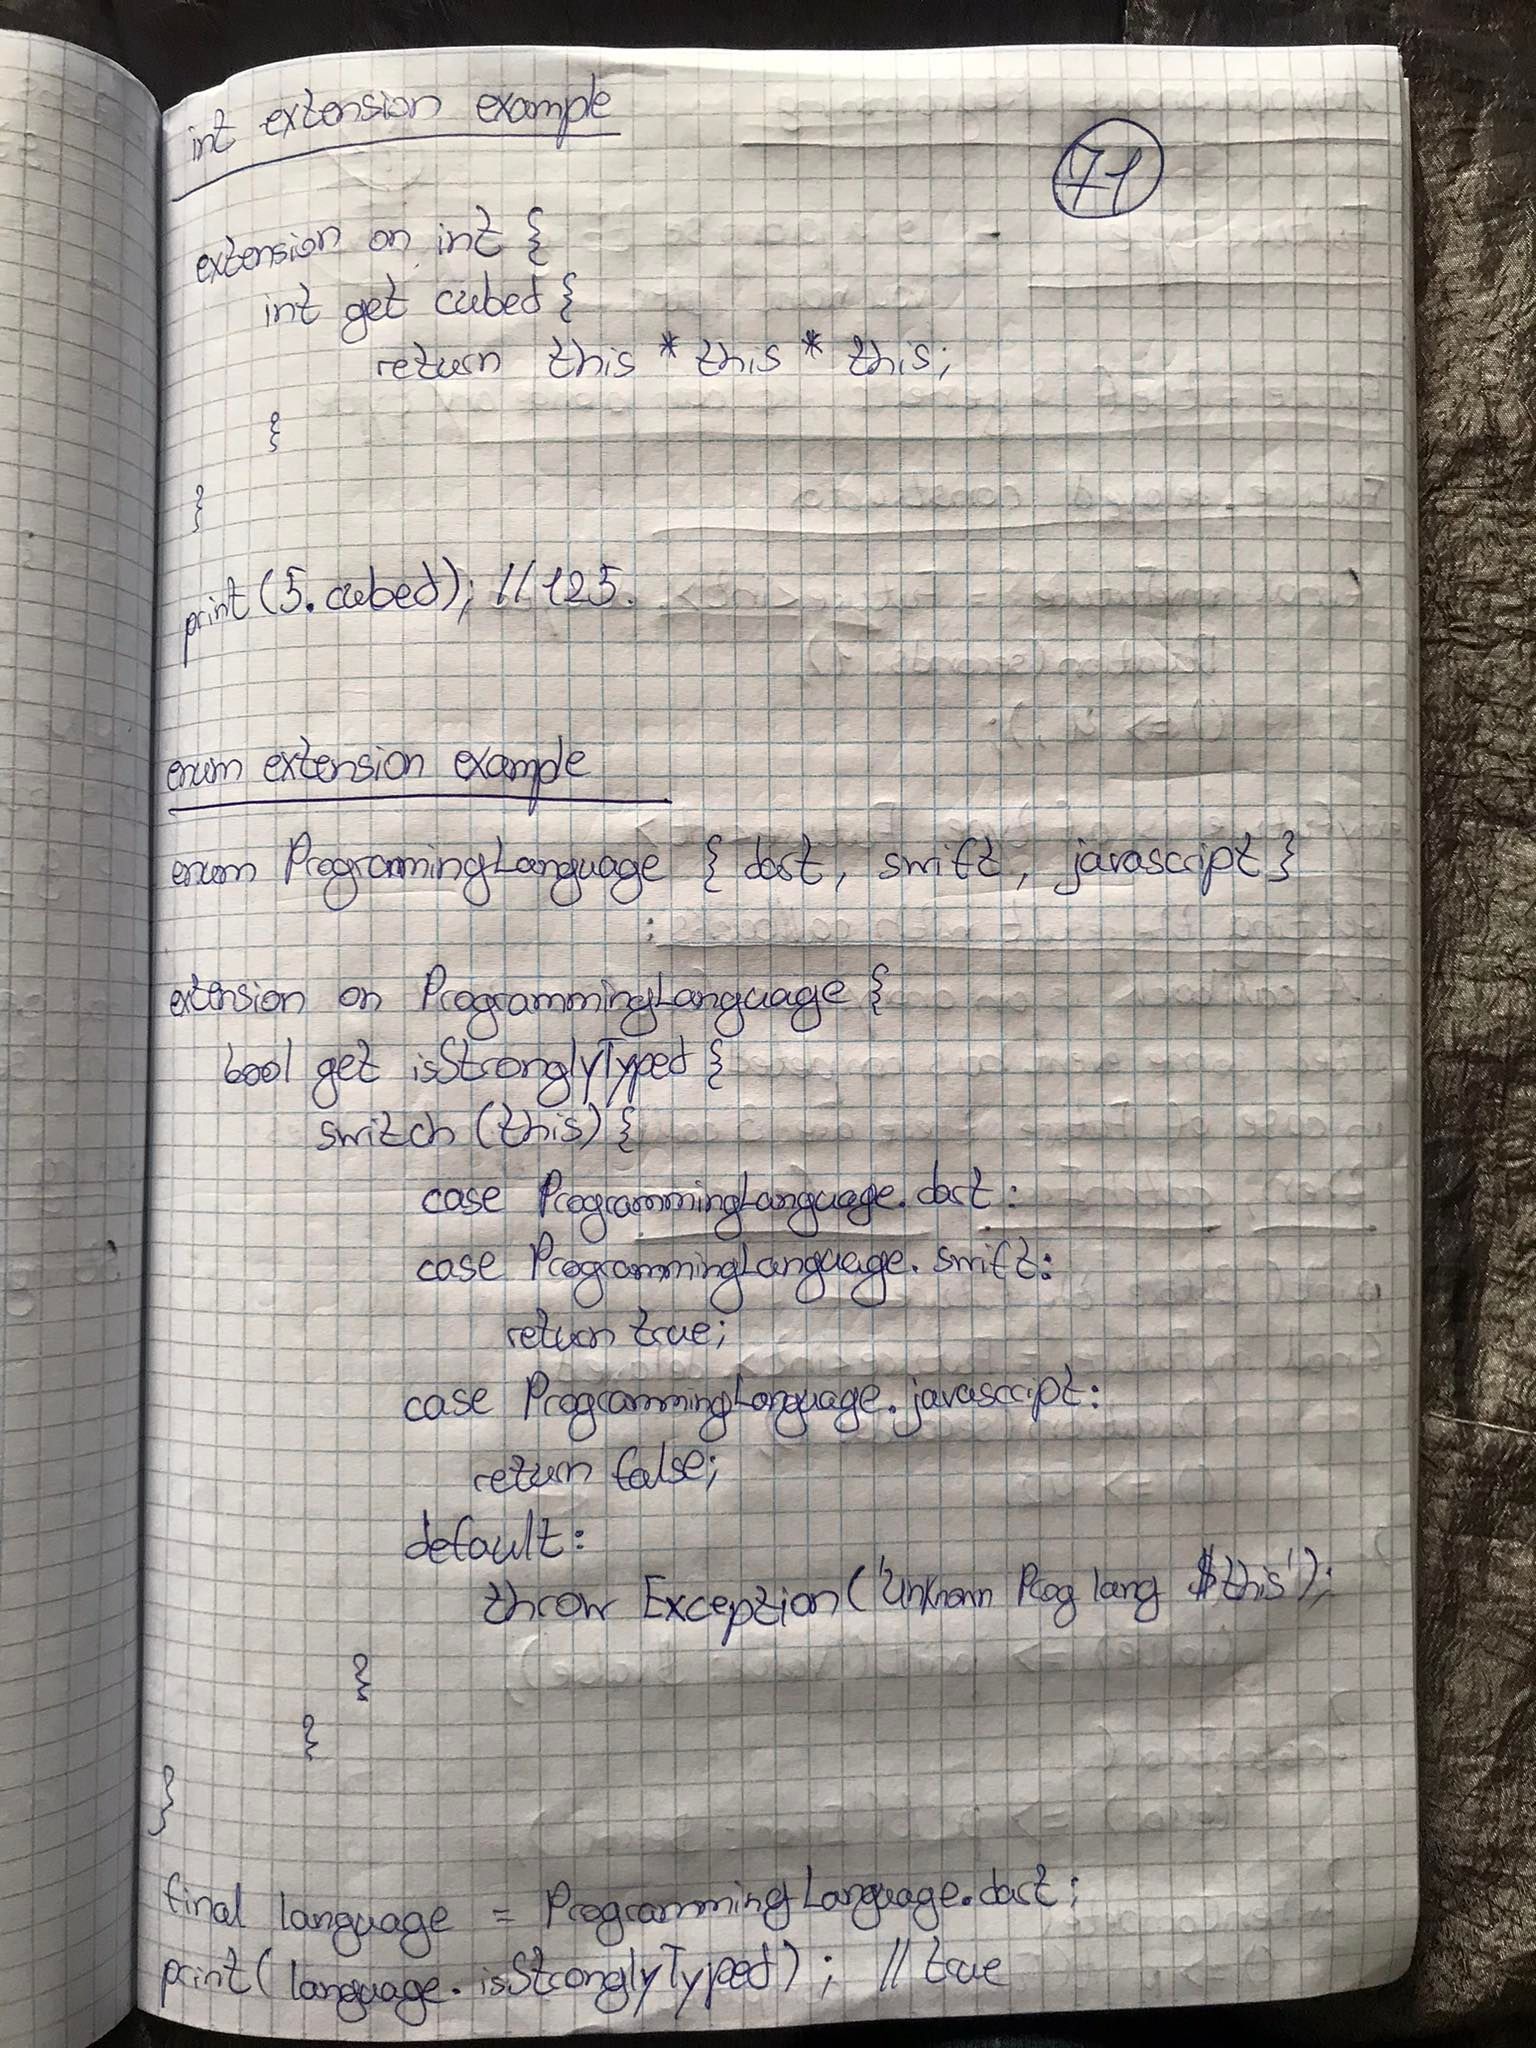 int extension example
71
extension on int {
int get cubed {
return this * this * this;
}
}
print(5.cubed); // 125.
enum extension example
enum ProgrammingLanguage { dart, swift, javascript }
;
extension on ProgrammingLanguage {
bool get isStronglyTyped {
switch (this) {
case ProgrammingLanguage.dart:
case ProgrammingLanguage.swift:
return true;
case ProgrammingLanguage.javascript:
return false;
default:
throw Exception('Unknown Prog lang $this');
}
}
}
final language = ProgrammingLanguage.dart;
print(language.isStronglyTyped); // true